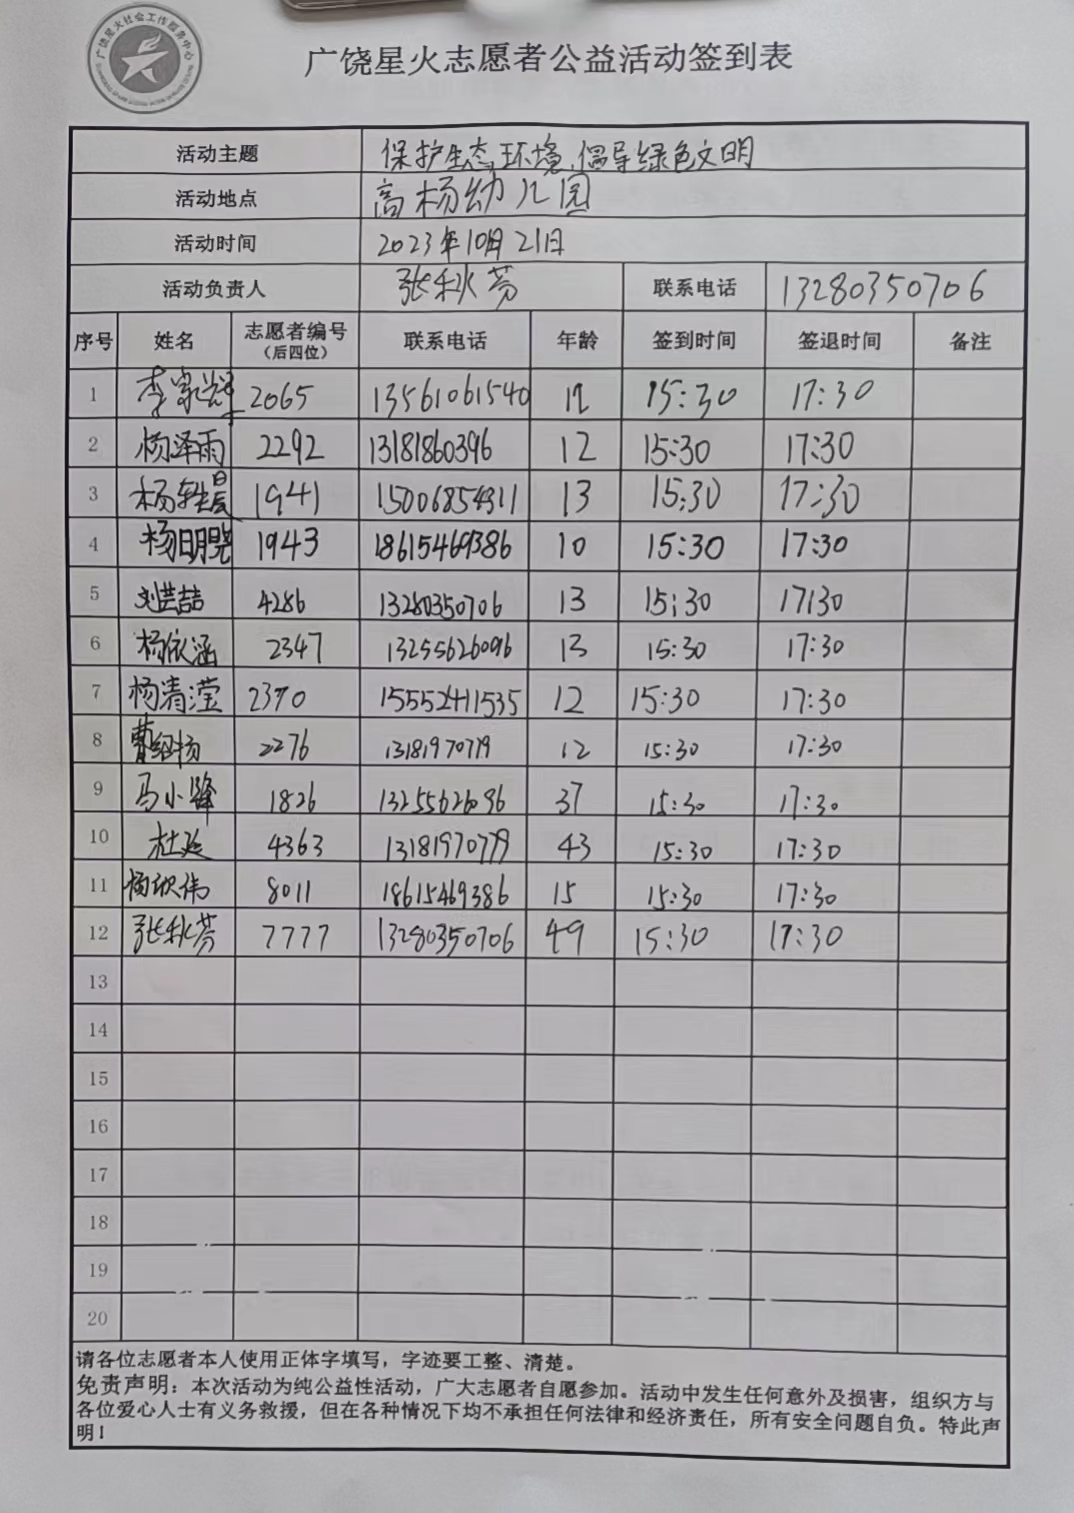 广饶星火社会工作服务中心
广饶星火志愿者公益活动签到表
活动主题 保护生态环境,倡导绿色文明
活动地点 高杨幼儿园
活动时间 2023年10月21日
活动负责人 张秋芬 联系电话 13280350706
序号 姓名 志愿者编号(后四位) 联系电话 年龄 签到时间 签退时间 备注
1 李家 2065 13561061540 12 15:30 17:30
2 杨泽雨 2292 13181860396 12 15:30 17:30
3 杨轶晨 1941 15006854311 13 15:30 17:30
4 杨明晓 1943 18615469386 10 15:30 17:30
5 刘芸喆 4286 13280350706 13 15:30 17:30
6 杨依涵 2347 13255626096 13 15:30 17:30
7 杨清滢 2370 15552411535 12 15:30 17:30
8 曹绍扬 2276 13181970779 12 15:30 17:30
9 马小 1826 13255626096 37 15:30 17:30
10 杜延 4363 13181970779 43 15:30 17:30
11 杨欣伟 8011 18615469386 15 15:30 17:30
12 张秋芬 7777 13280350706 49 15:30 17:30
13
14
15
16
17
18
19
20
请各位志愿者本人使用正体字填写，字迹要工整、清楚。
免责声明：本次活动为纯公益性活动，广大志愿者自愿参加。活动中发生任何意外及损害，组织方与
各位爱心人士有义务救援，但在各种情况下均不承担任何法律和经济责任，所有安全问题自负。特此声
明！